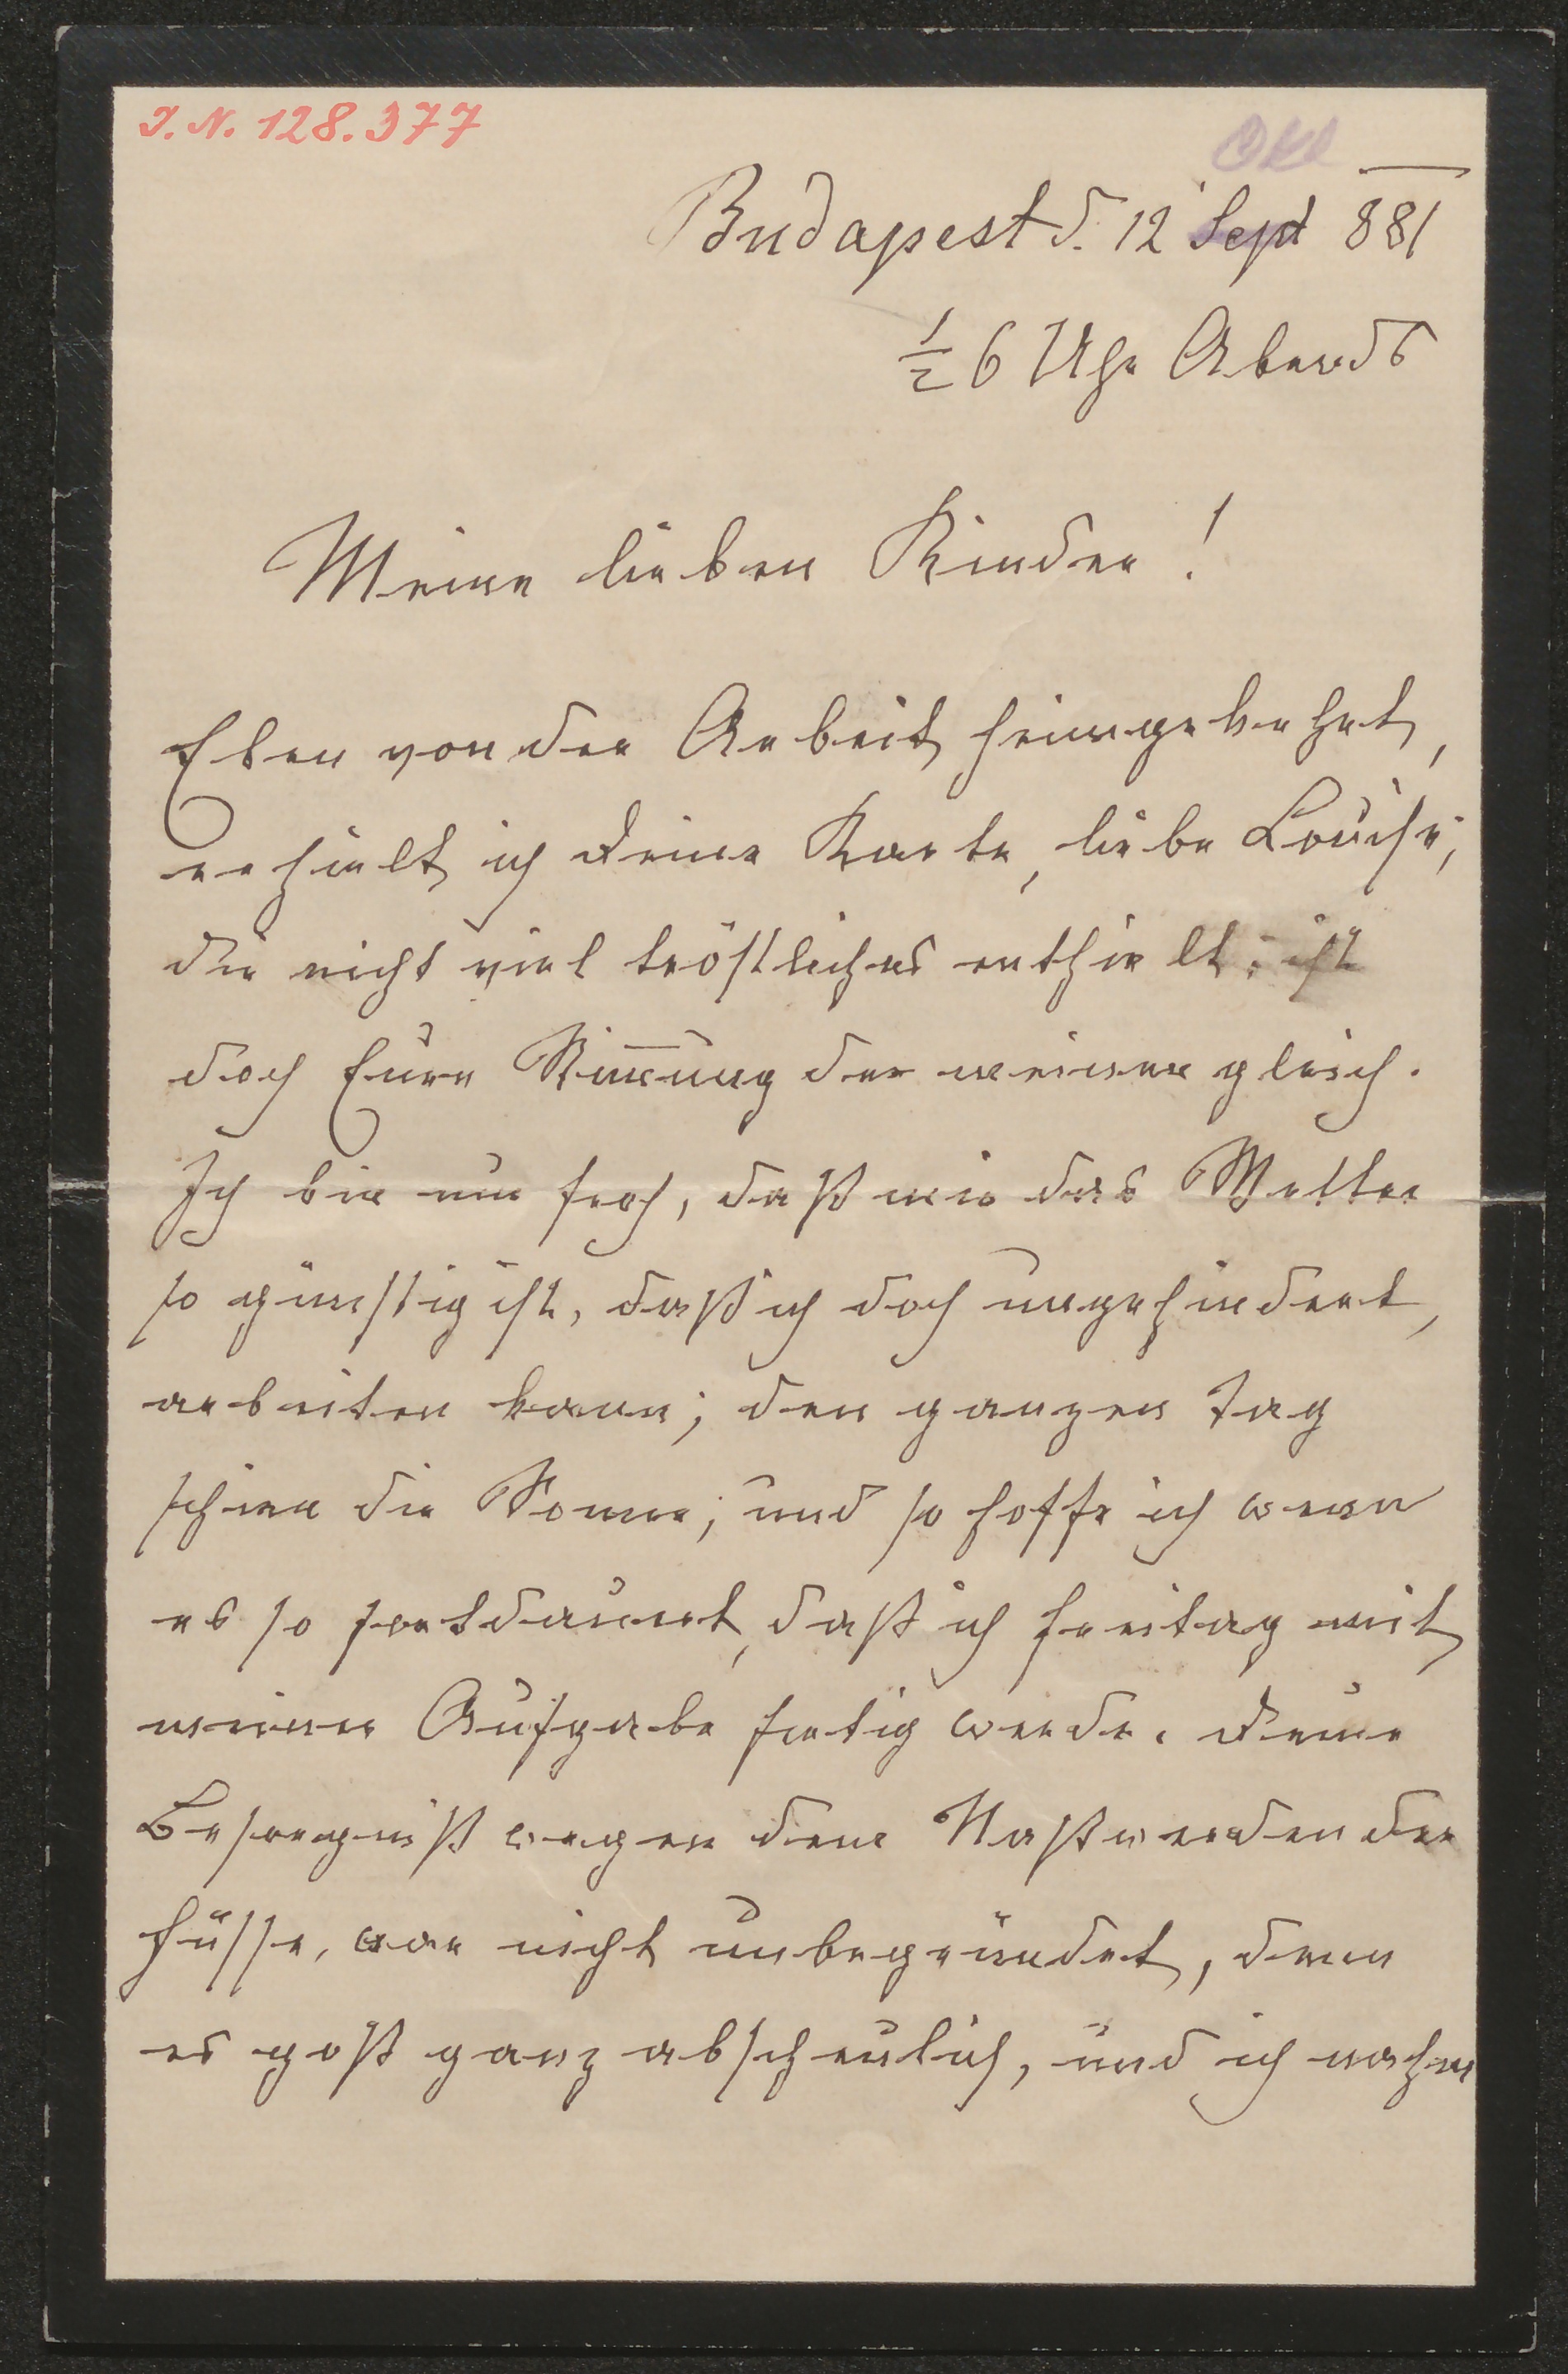 I. N. 128.377
Okt
Budapest d. 12 Sept 881
½ 6 Uhr Abends
Meine lieben Kinder!
Eben von der Arbeit heimgekehrt,
erhielt ich Deine Karte, liebe Louise,
die nicht viel tröstliches enthielt; ist
doch Eure Stimmung der meinen gleich.
Ich bin nur froh, daß mir das Wetter
so günstig ist, daß ich doch ungehindert,
arbeiten kann; den ganzen Tag
schien die Sonne; und so hoffe ich wenn
es so fortdauert, daß ich Freitag mit
meiner Aufgabe fertig werde. Deine
Besorgniß wegen dem Naßwerden der
Füsse, war nicht unbegründet, denn
es goß ganz abscheulich, und ich nahm